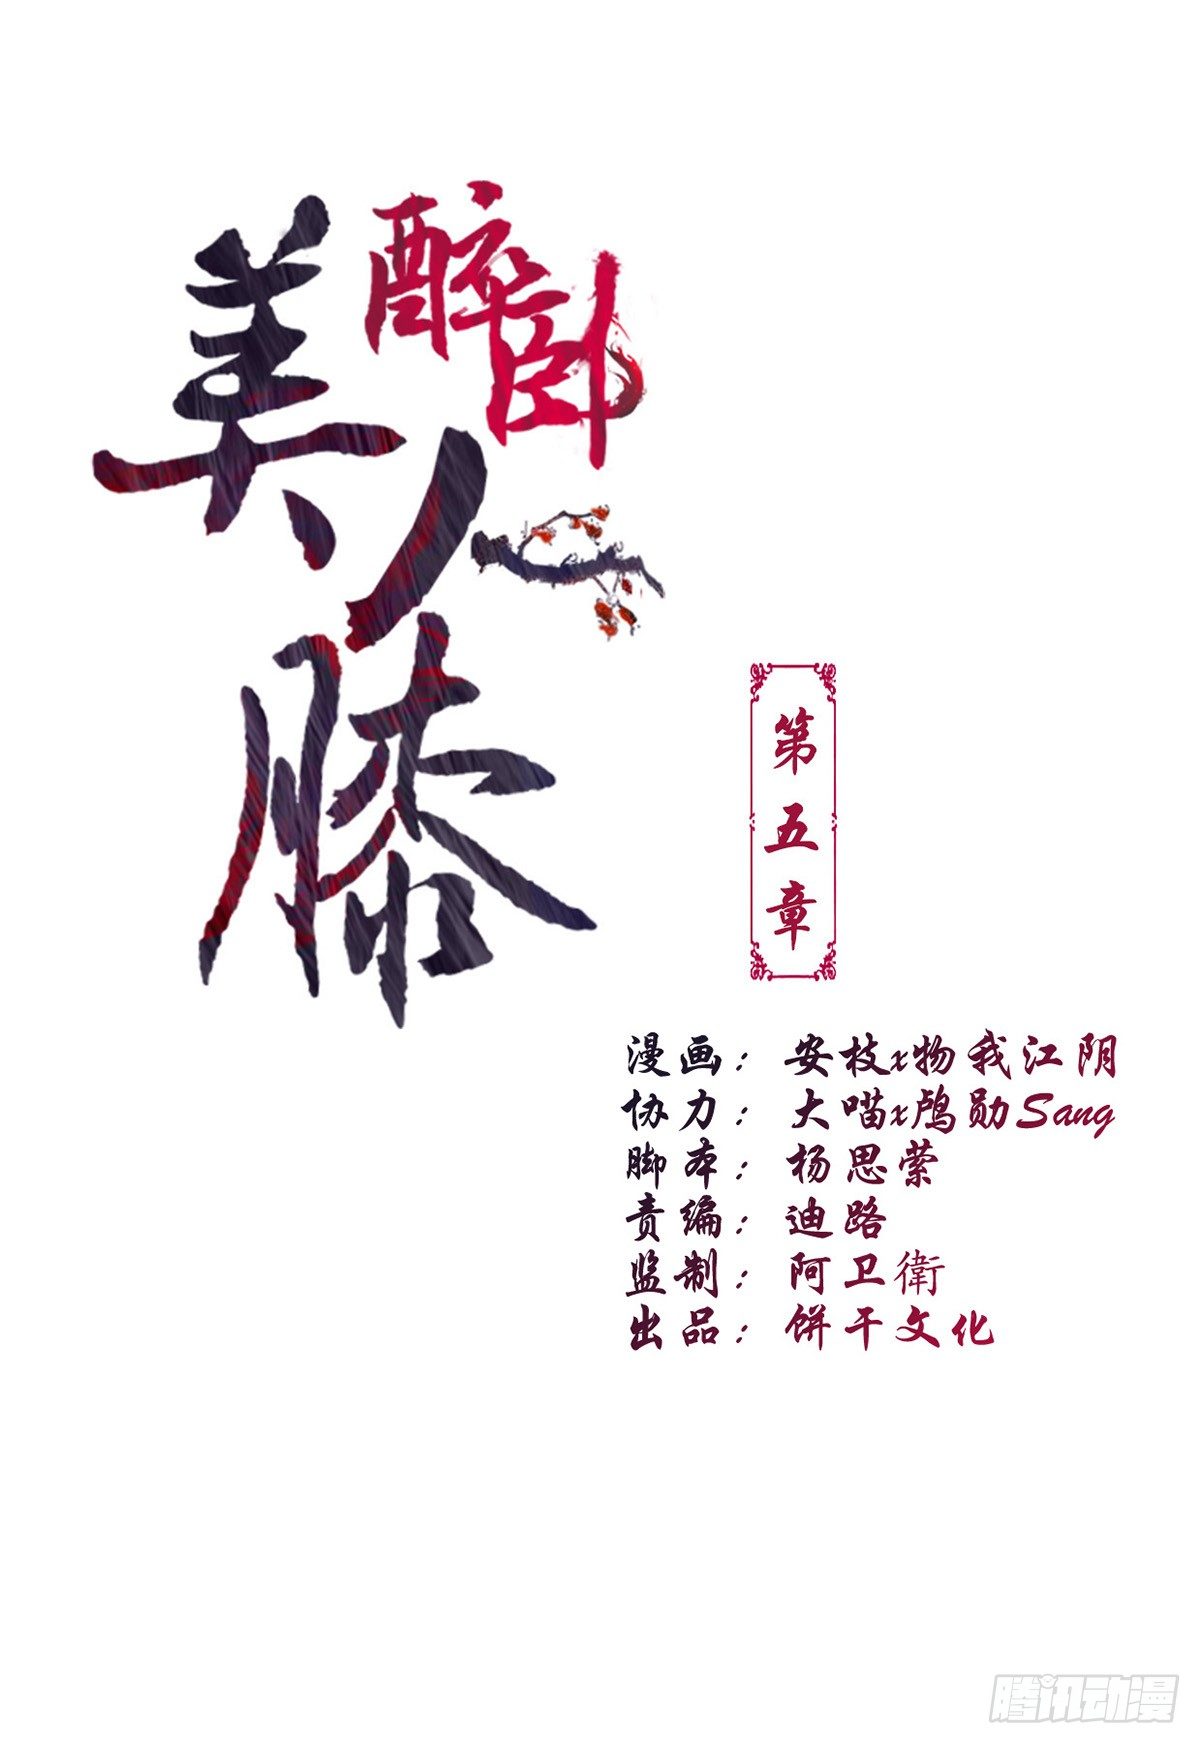 醉卧
美人
膝
第五章
漫画：安枝x物我江阴
协力：大喵x鸬勋Sang
脚本：杨思萦
责编：迪路
监制：阿卫衛
出品：饼干文化
腾讯动漫